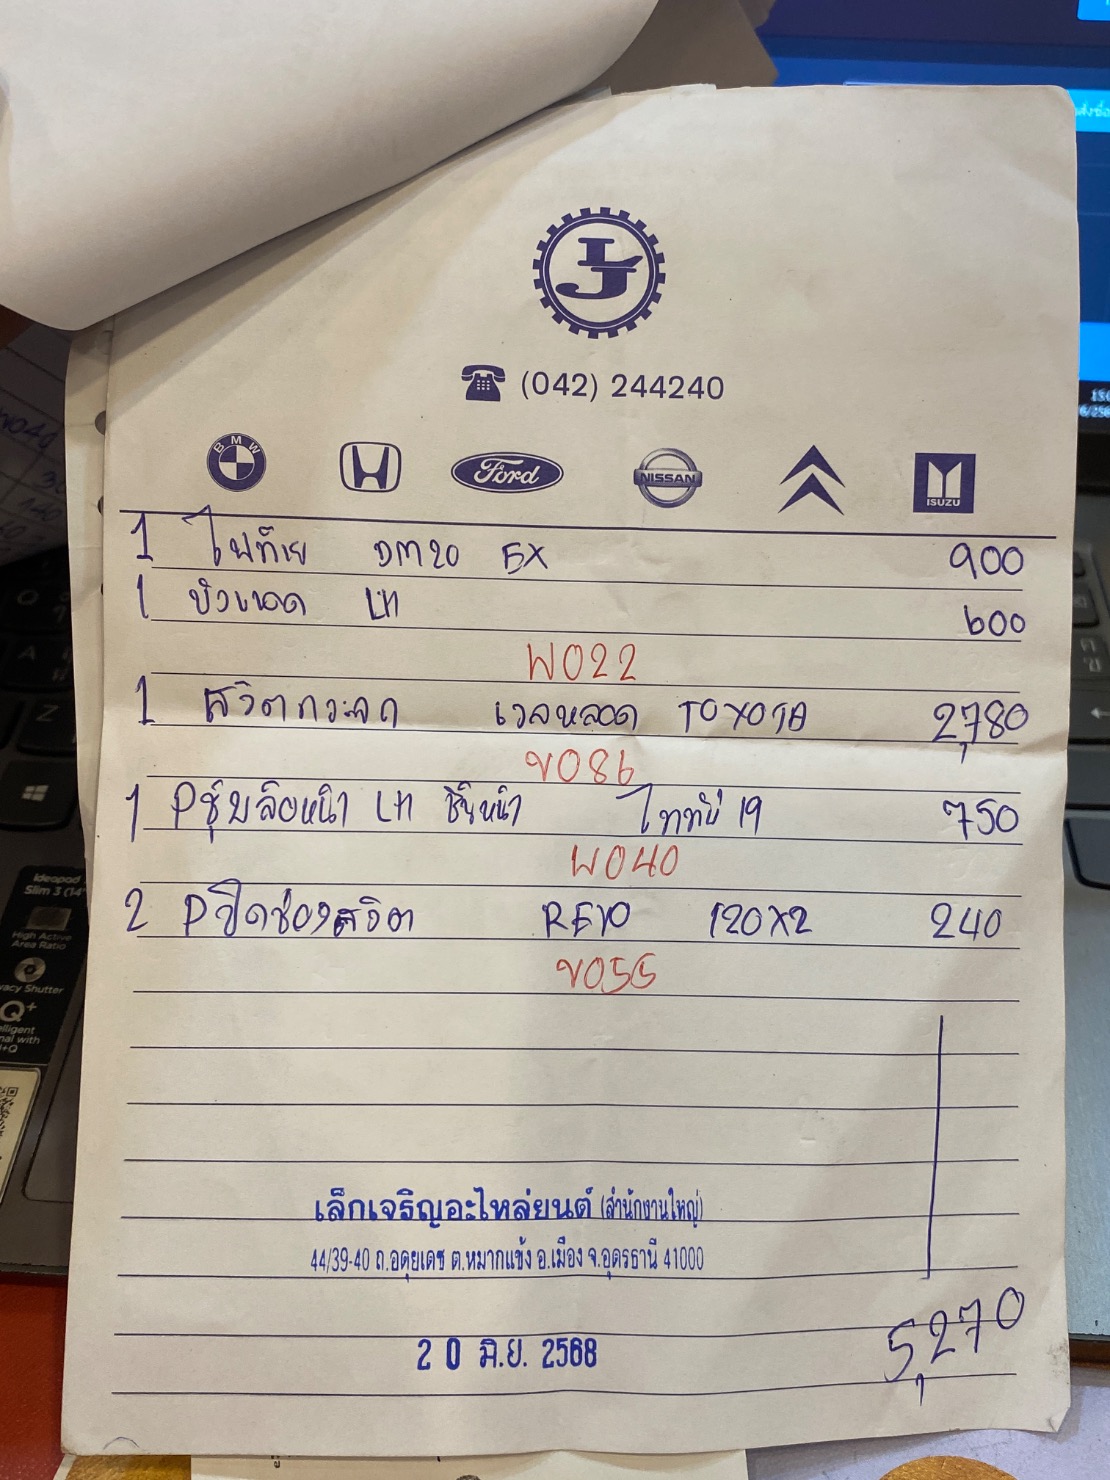 LJ
(042) 244240
BMW
Ford
NISSAN
ISUZU
1 ไฟท้าย DM20 EX 900
1 LH 600
W022
1 สวิตกระจก TOYOTA 2,780
V086
1 Pซุ้มล้อหน้า LH ชิ้นหน้า 19 750
W040
2 Pปิดช่องสวิต REVO 120X2 240
V055
เล็กเจริญอะไหล่ยนต์ (สำนักงานใหญ่)
44/39-40 ถ.อดุยเดช ต.หมากแข้ง อ.เมือง จ.อุดรธานี 41000
20 มิ.ย. 2568
5,270
ideapad
Slim 3 (14"
High Active
Area Ratio
Privacy Shutter
Q+